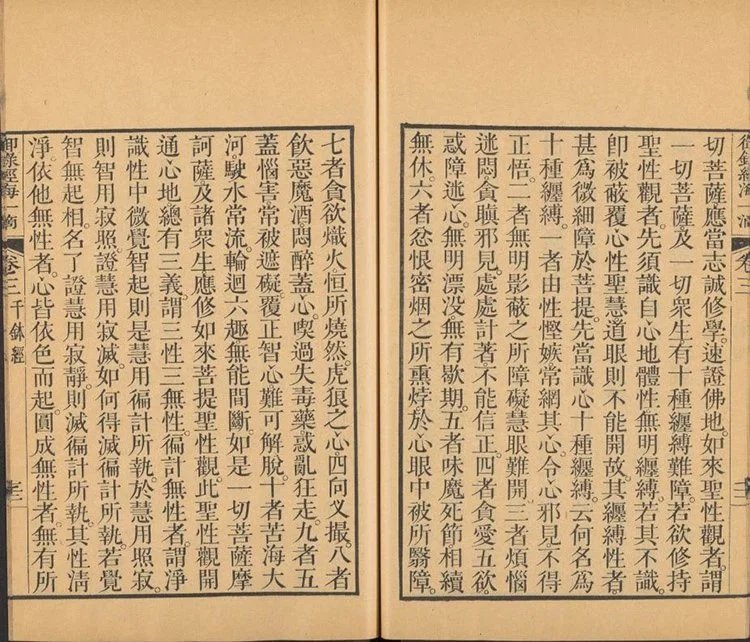 御錄經海一滴 卷三
切菩薩應當志誠修學。速證佛地。如來聖性觀者。謂
一切菩薩及一切衆生有十種纏縛難障。若欲修持
聖性觀者。先須識自心地體性無明纏縛。若其不識
卽被蔽覆心性聖慧道眼則不能開故。其纏縛性者
甚爲微細障於菩提。先當識心十種纏縛。云何名爲
十種纏縛。一者由性慳嫉常網其心。令心邪見不得
正悟。二者無明影蔽之所障礙慧眼難開。三者煩惱
迷悶貪瞋邪見。處處計著。不能信正。四者貪愛五欲。
惑障迷心。無明漂没。無有歇期。五者味魔死節相續
無休。六者忿恨密烟之所熏悖於心眼中被所翳障。
七者貪欲熾火恒所燒然。虎狼之心四向叉撮。八者
飲惡魔酒悶醉蓋心。喫過失毒藥。惑亂狂走。九者五
蓋惱害常被遮礙覆正智心難可解脫。十者苦海大
河。駛水常流。輪迴六趣無能間斷。如是一切菩薩摩
訶薩及諸衆生應修如來菩提聖性觀。此聖性觀開
通心地總有三義。謂三性三無性。徧計無性者。謂淨
識性中微覺智起則是慧用徧計所執。於慧用照寂。
則智用寂照。證慧用寂滅。如何得滅徧計所執。若覺
智無起相。名了證慧用寂靜。則滅徧計所執。其性淸
淨。依他無性者。心皆依色而起。圓成無性者。無有所
御錄經海一滴 卷三 千鉢經